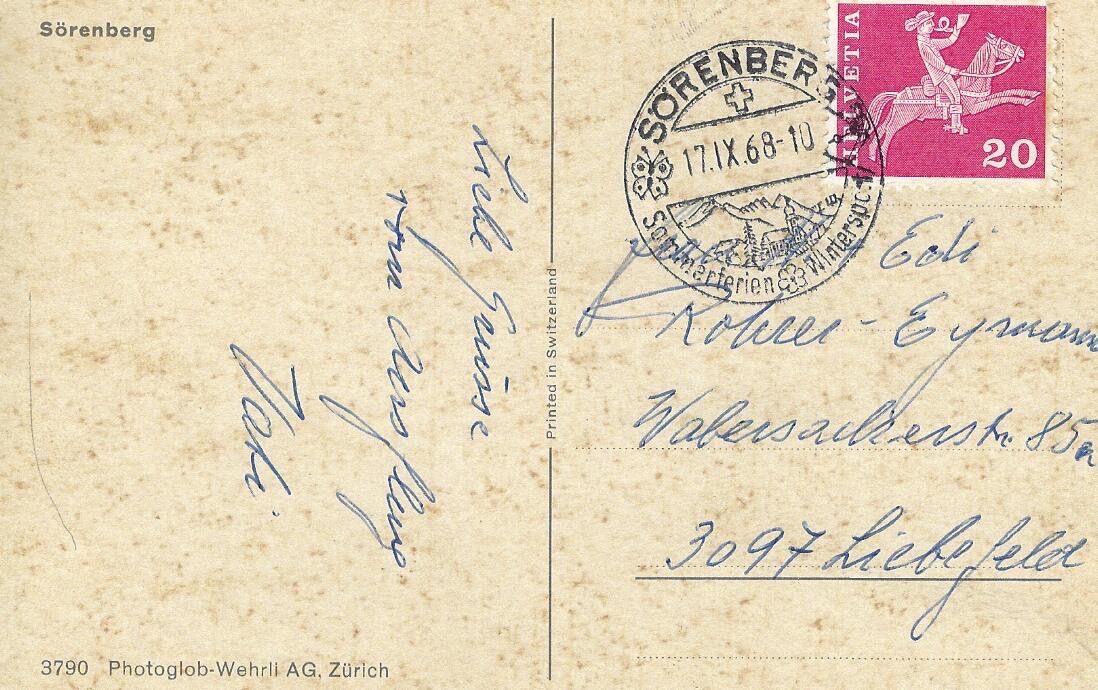 Sörenberg
Liebe Grüsse
vom Ausflug
Printed in Switzerland
3790 Photoglob-Wehrli AG, Zürich
HELVETIA
20
SÖRENBERG
17.IX.68-10
Sommerferien Wintersport
Edi
Kohler-Eymann
Wabersackerstr. 85a
3097 Liebefeld